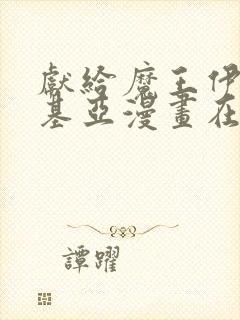 獻給魔王伊
基亞漫畫在
譚躍